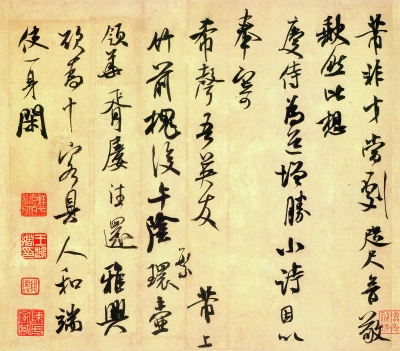 芾非才當劇咫尺音敬
歉然此想
慶侍為道增勝小詩因以
奉寄
希聲吾英友 芾上
竹前槐後午陰環壺
領華胥屢往還雅興
欲為十客具人和端
使一身閑